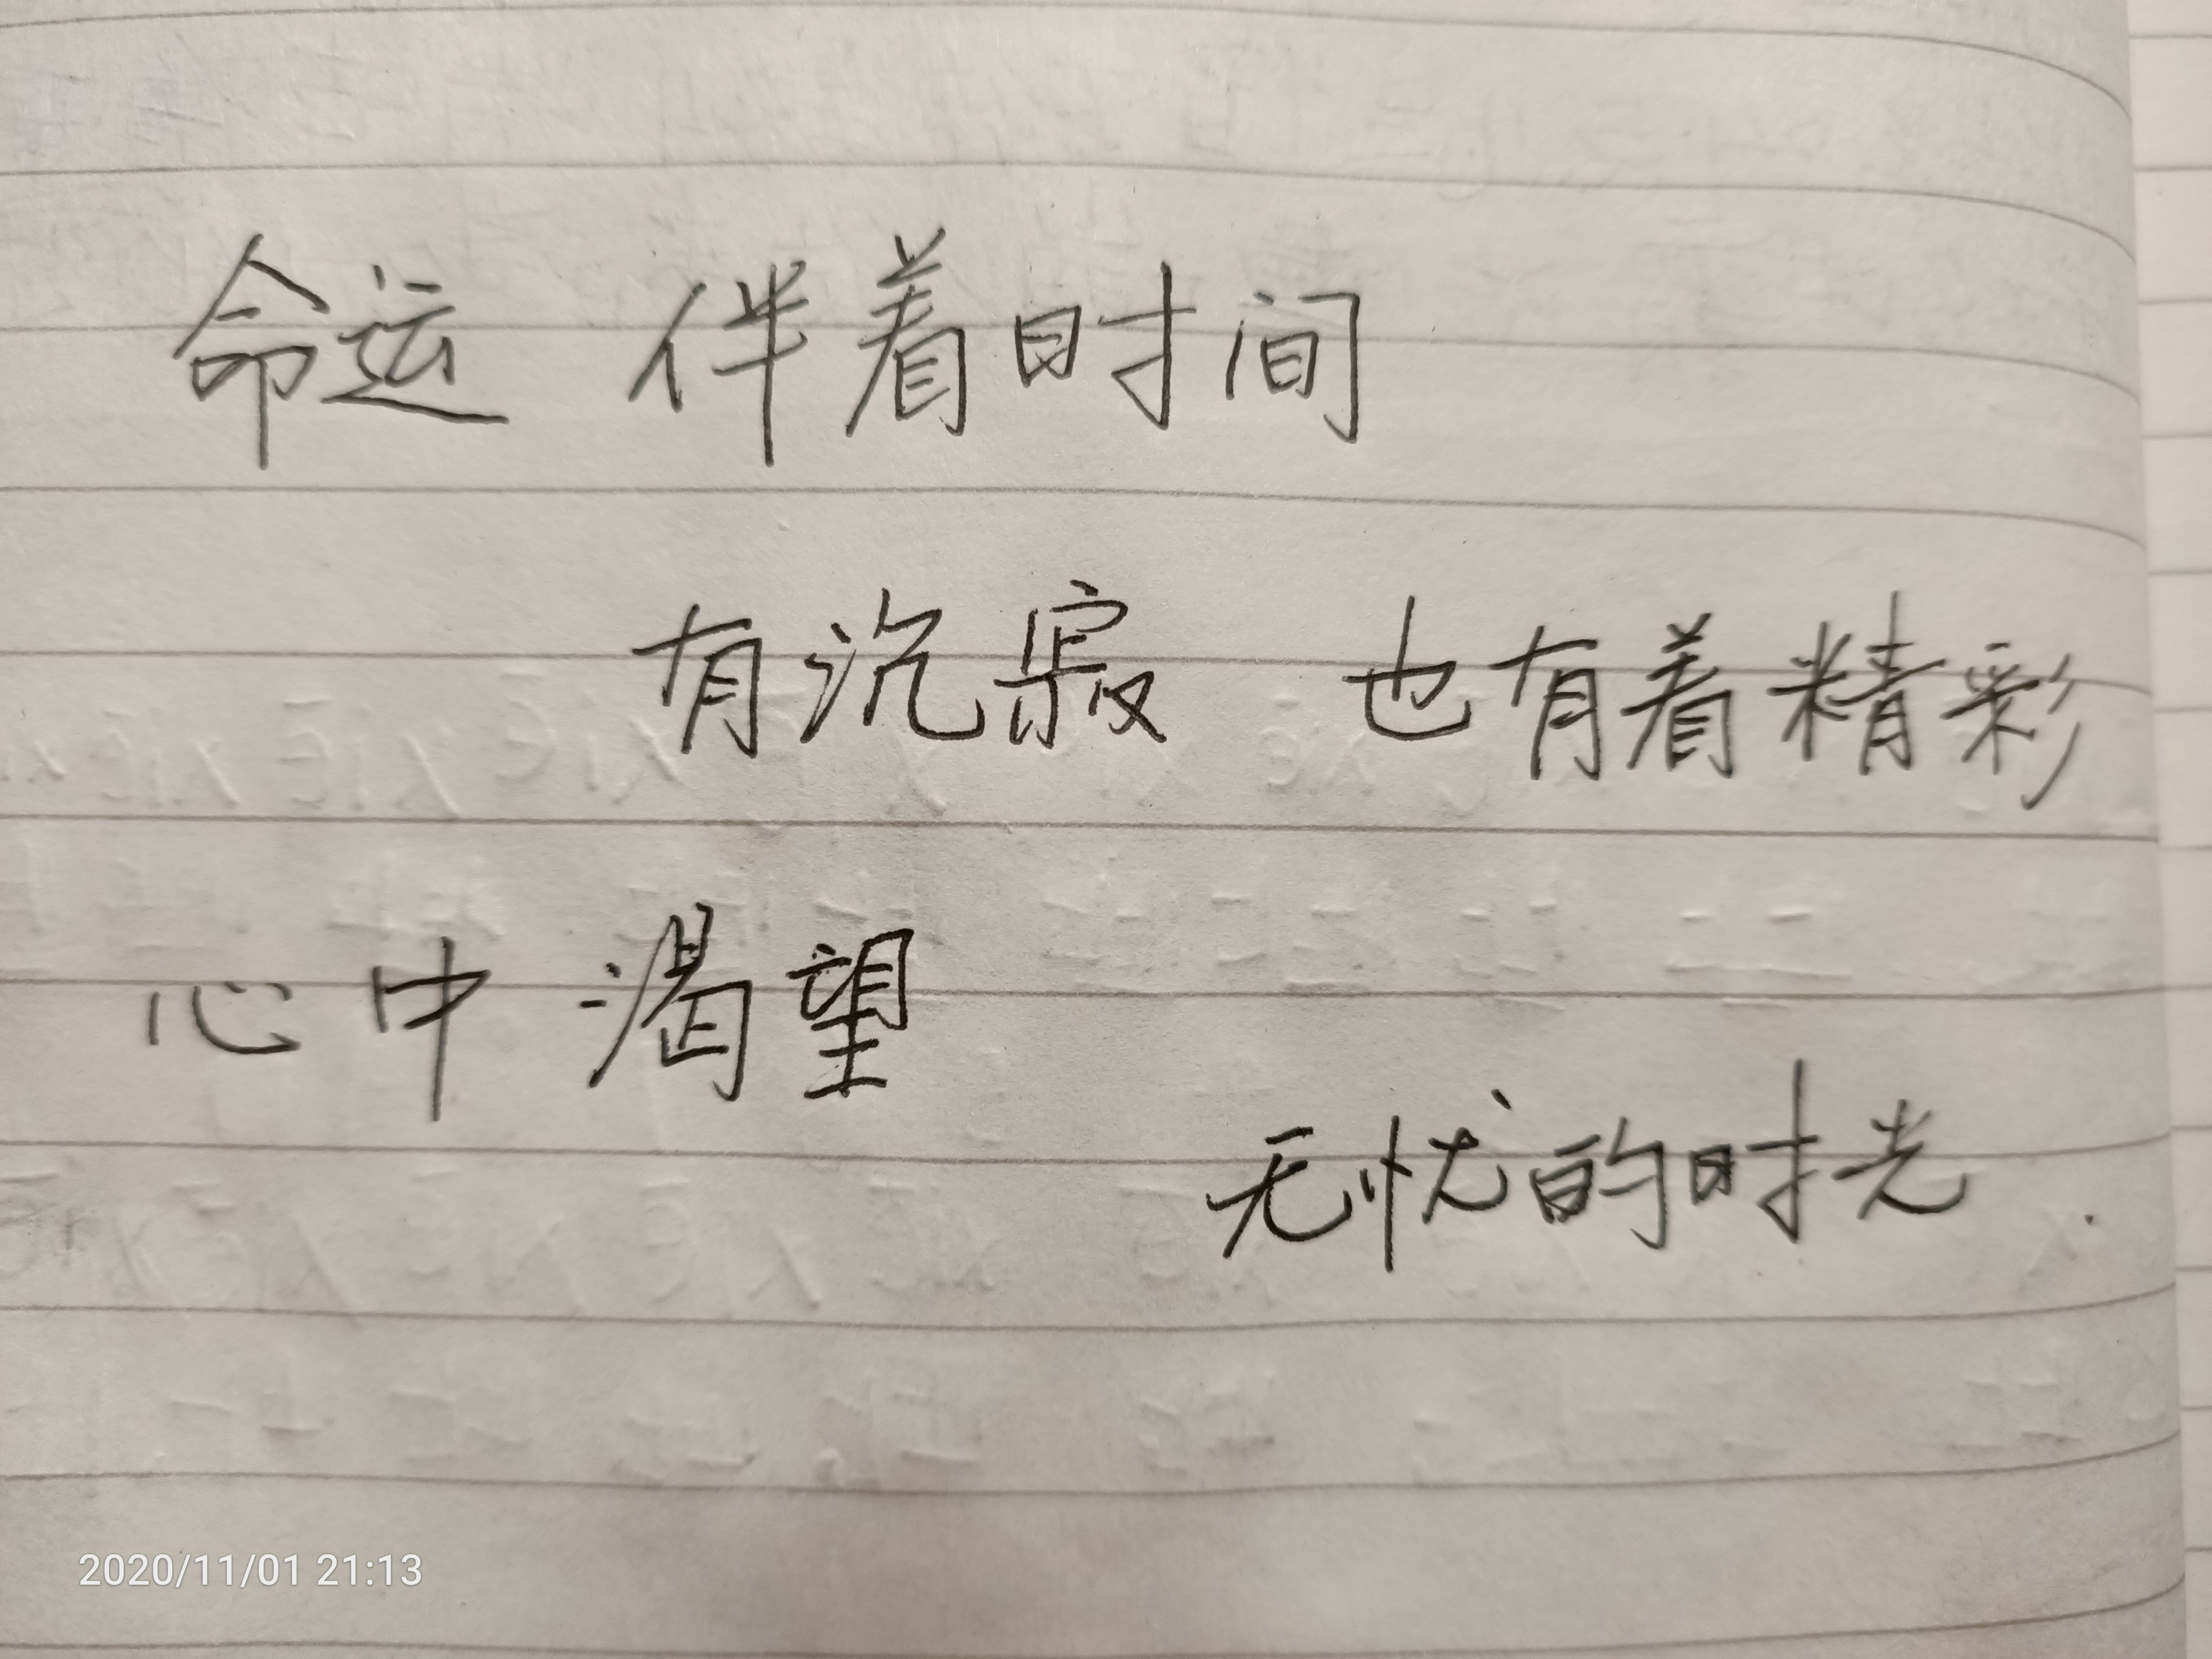 命运 伴着时间
有沉寂 也有着精彩
心中 渴望
无忧的时光.
2020/11/01 21:13